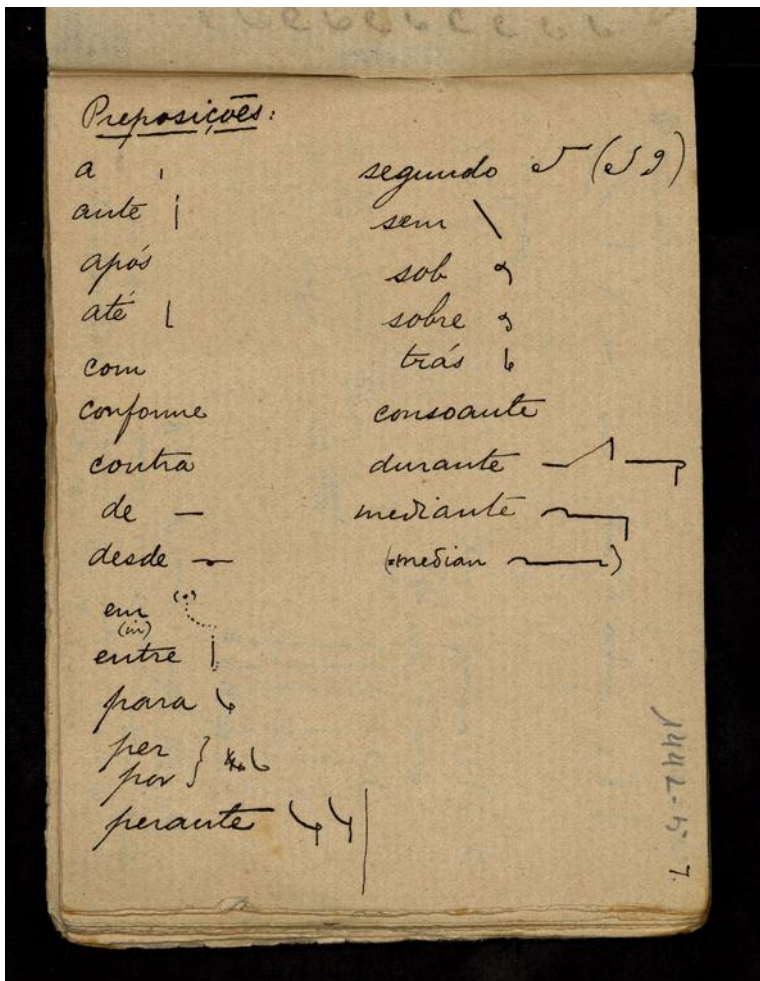 Preposições:
a
ante
após
até
com
conforme
contra
de
desde
em
(in)
entre
para
per
por
perante
segundo
sem
sob
sobre
trás
consoante
durante
mediante
(median)
144L-5-7